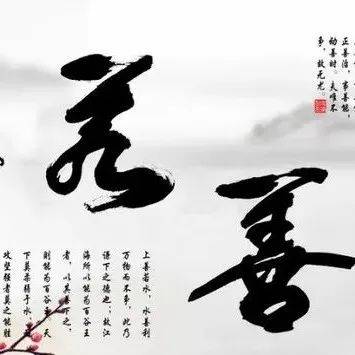 正善治，事善能，
动善时。夫唯不
争，故无尤。
善
若
上善若水，水善利
万物而不争，此乃
谦下之德也；故江
海所以能为百谷王
者，以其善下之，
则能为百谷王。天
下莫柔弱于水，
攻坚强者莫之能胜